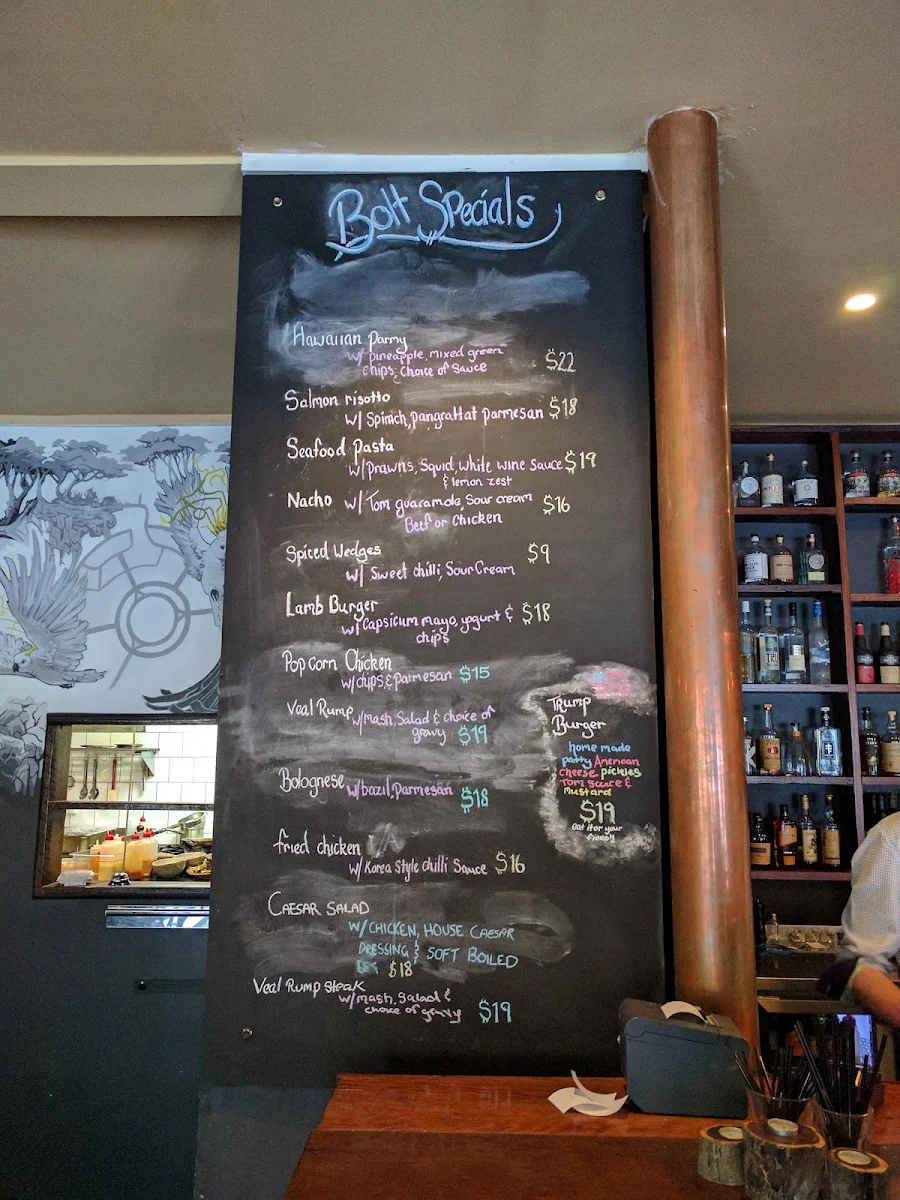 Bolt Specials
Hawaiian Parmy
w/ pineapple, mixed green
chips, choice of sauce $22
Salmon risotto
w/ Spinich, pangrattat parmesan $18
Seafood Pasta
w/prawns, Squid, white wine sauce $19
& lemon zest
Nacho w/ Tom guaramole, Sour cream $16
Beef or Chicken
Spiced Wedges $9
w/ Sweet chilli, Sour Cream
Lamb Burger
w/ Capsicum mayo, yogurt & $18
chips
Pop corn Chicken
w/chips & Parmesan $15
Veal Rump w/mash, Salad & choice of
gravy $19
Trump
Burger
home made
patty American
cheese pickles
Tom sauce &
mustard
$19
Eat it for your
Bolognese w/bazil, Parmesan $18
fried chicken
w/Korea Style chilli Sauce $16
CAESAR SALAD
W/CHICKEN, HOUSE CAESAR
DRESSING & SOFT BOILED
$18
Veal Rump Steak
w/mash, Salad &
choice of gravy $19